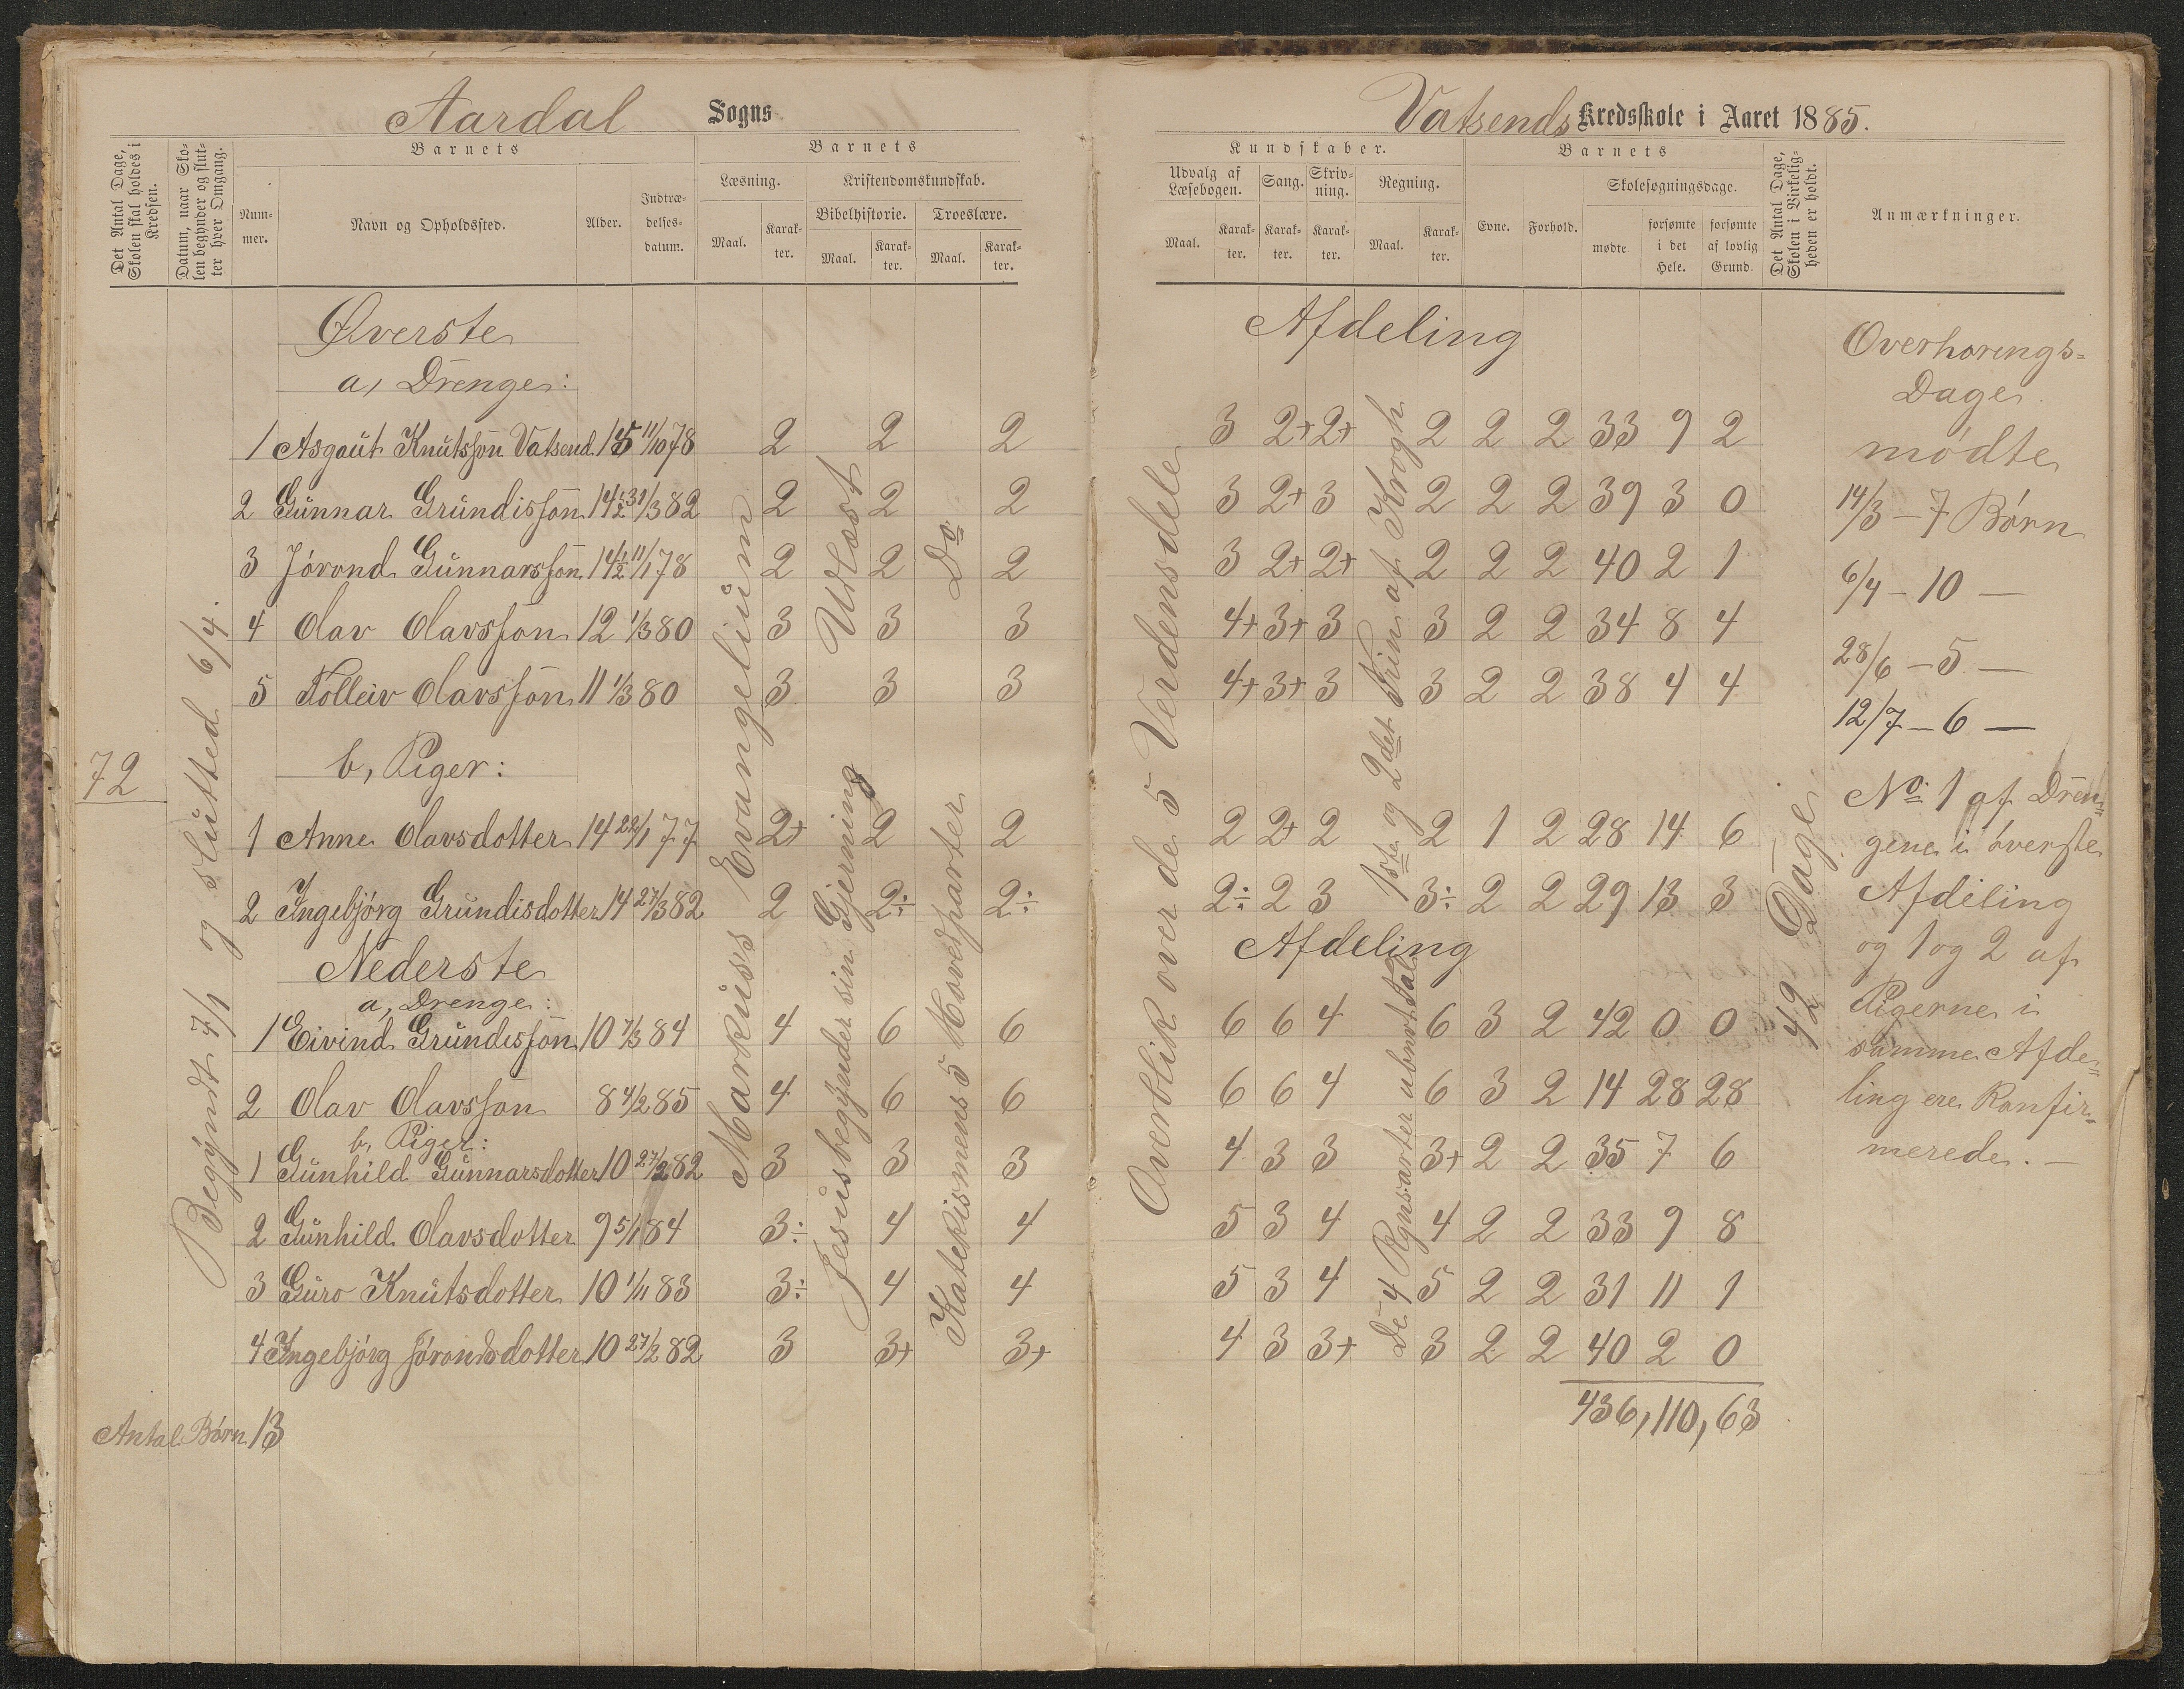 Aardal Sogns
Det Antal Dage, Skolen skal holdes i Kredsen.
Datum, naar Skolen begynder og slutter hver Omgang.
Barnets
Nummer.
Navn og Opholdssted.
Alder.
Indtrædelsesdatum.
Barnets
Læsning.
Maal.
Karakter.
Kristendomskundskab.
Bibelhistorie.
Maal.
Karakter.
Troeslære.
Maal.
Karakter.
72
Begÿndt 7/1 og slutted 6/4.
Markuss Evangelium
Jesus begÿnder sin Gjerning
Udlæst
Katekismens 5 Hovedparter
Do
Øverste
a, Drenge:
1 Asgaut Knutsson Vatsend 15 11/10 78 2 2 2
2 Gunnar Grundisson 14 1/2 31/3 82 2 2 2
3 Jórond Gunnarsson 14 1/2 11/1 78 2 2 2
4 Olav Olavsson 12 1/3 80 3 3 3
5 Tolleiv Olavsson 11 1/3 80 3 3 3
b, Piger:
1 Anne Olavsdotter 14 22/1 77 2+ 2 2
2 Ingebjórg Grundisdotter 14 27/3 82 2 2÷ 2÷
Nederste
a, Drenge:
1 Eivind Grundisson 10 7/3 84 4 6 6
2 Olav Olavsson 8 4/2 85 4 6 6
b, Piger:
1 Gunhild Gunnarsdotter 10 27/2 82 3 3 3
2 Gunhild Olavsdotter 9 5/1 84 3÷ 4 4
3 Guro Knutsdotter 10 1/11 83 3÷ 4 4
4 Ingebjórg Jórondsdotter 10 27/2 82 3 3+ 3+
Antal Børn 13
Vatsends Kredsskole i Aaret 1885.
Kundskaber.
Udvalg af Læsebogen.
Maal.
Karakter.
Sang.
Karakter.
Skrivning.
Karakter.
Regning.
Maal.
Karakter.
Barnets
Evne.
Forhold.
Skolesøgningsdage.
mødte
forsømte i det Hele.
forsømte af lovlig Grund.
Det Antal Dage, Skolen i Virkeligheden er holdt.
Anmærkninger.
Overblik over de 5 Verdensdele
1ste og 2det Trin af Krogh
De 4 Rgnsarter ubnvt Tal
42 Dage
Afdeling
3 2+ 2+ 2 2 2 33 9 2
3 2+ 3 2 2 2 39 3 0
3 2+ 2+ 2 2 2 40 2 1
4+ 3+ 3 3 2 2 34 8 4
4+ 3+ 3 3 2 2 38 4 4
2 2+ 2 2 1 2 28 14 6
2÷ 2 3 3÷ 2 2 29 13 3
Afdeling
6 6 4 6 3 2 42 0 0
6 6 4 6 3 2 14 28 28
4 3 3 3+ 2 2 35 7 6
5 3 4 4 2 2 33 9 8
5 3 4 5 2 2 31 11 1
4 3 3+ 3 2 2 40 2 0
436, 110, 63
Overhørings=
Dage
mødte
14/3 – 7 Børn
6/4 – 10 –
28/6 – 5 –
12/7 – 6 –
No 1 af Dren„
gene i överste
Afdeling
og 1 og 2 af
Pigerne i
samme Afde„
ling ere Konfir„
merede. –